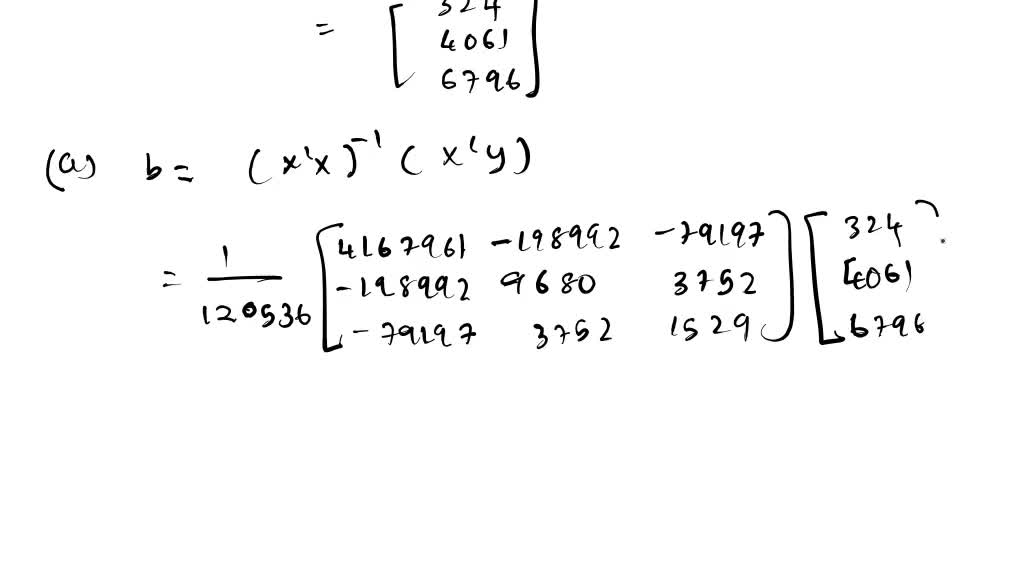 324
= [ 4061
6796 ]
(a) b = (x'x)⁻¹ (x'y)
= 1/120536 [ 4167961 -198992 -79197 ] [ 324
-198992 9680 3752 4061
-79197 3752 1529 6796